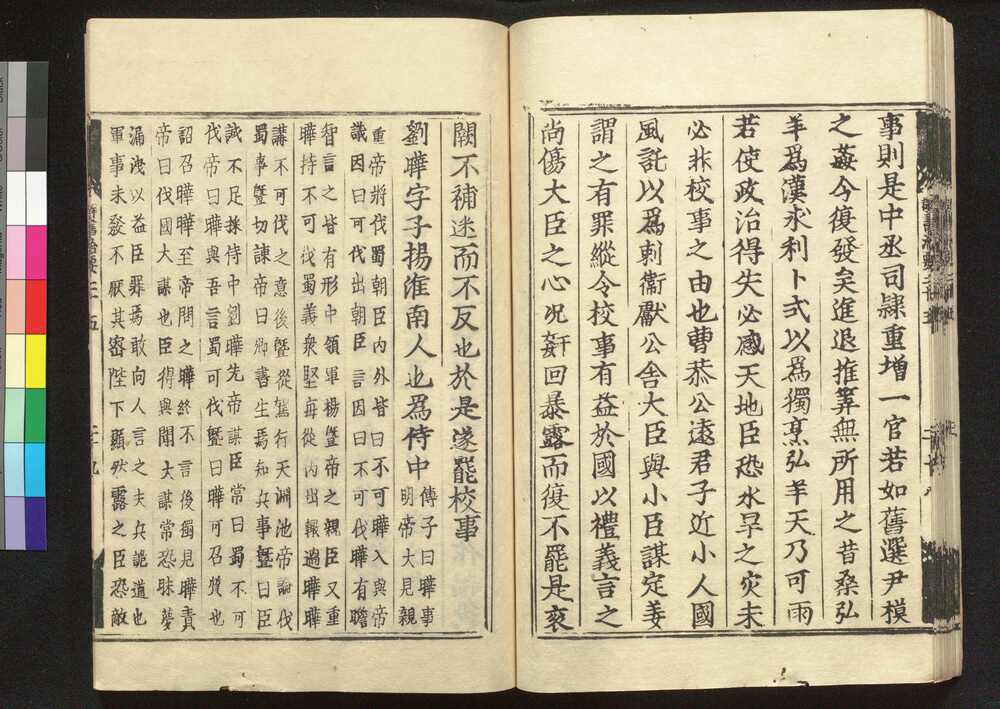 事則是中丞司隸重增一官若如舊選尹模
之姦今復發矣進退推筭無所用之昔桑弘
羊爲漢求利卜式以爲獨烹弘羊天乃可雨
若使政治得失必感天地臣恐水旱之灾未
必非校事之由也曹恭公遠君子近小人國
風託以爲刺衞獻公舍大臣與小臣謀定姜
謂之有罪縱令校事有益於國以禮義言之
尚傷大臣之心况姧回暴露而復不罷是衮
闕不補迷而不反也於是遂罷校事
劉曄字子揚淮南人也爲侍中
傅子曰曄事
明帝大見親
重帝將伐蜀朝臣內外皆曰不可曄入與帝
議因曰可伐出朝臣言因曰不可伐曄有瞻
智言之皆有形中領軍楊曁帝之親臣又重
曄持不可伐蜀義衆堅每從內出輒過曄曄
講不可伐之意後曁從駕行天淵池帝論伐
蜀事曁切諫帝曰卿書生焉知兵事曁曰臣
誠不足採侍中劉曄先帝謀臣常曰蜀不可
伐帝曰曄與吾言蜀可伐曁曰曄可召質也
詔召曄曄至帝問之曄終不言後獨見曄責
帝曰伐國大謀也臣得與聞大謀常恐眯夢
漏洩以益臣罪焉敢向人言之夫兵詭道也
軍事未發不厭其密陛下顯然露之臣恐敵